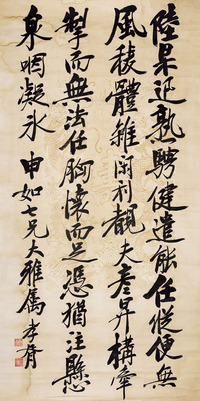 陸杲迅熟騁健遣能任從便無
風稜體雖閑利覩夫彥昇構牽
掣而無法任胸懷而足憑猶注懸
泉咽凝氷 申如七兄大雅屬 孝胥